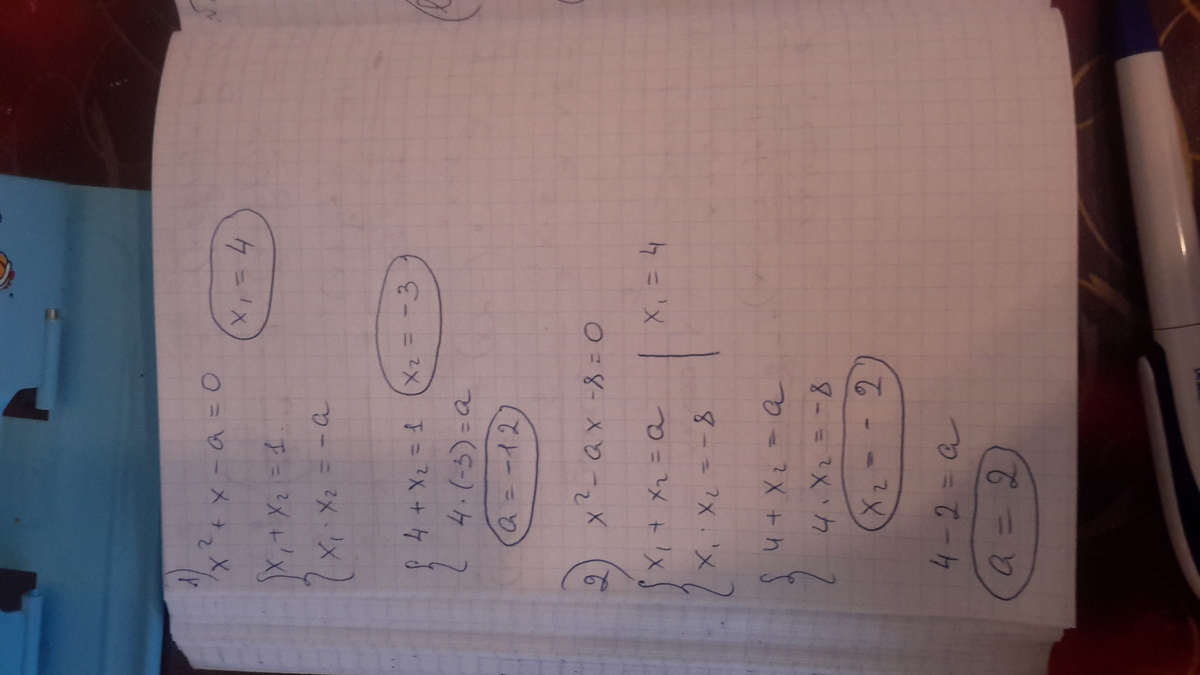 1)
x² + x - a = 0
x₁ = 4
{ x₁ + x₂ = 1.
x₁ · x₂ = -a
{ 4 + x₂ = 1
x₂ = -3
4 · (-3) = a
a = -12
2) x² - ax - 8 = 0
{ x₁ + x₂ = a | x₁ = 4
x₁ · x₂ = -8
{ 4 + x₂ = a
4 · x₂ = -8
x₂ = -2
4 - 2 = a
a = 2